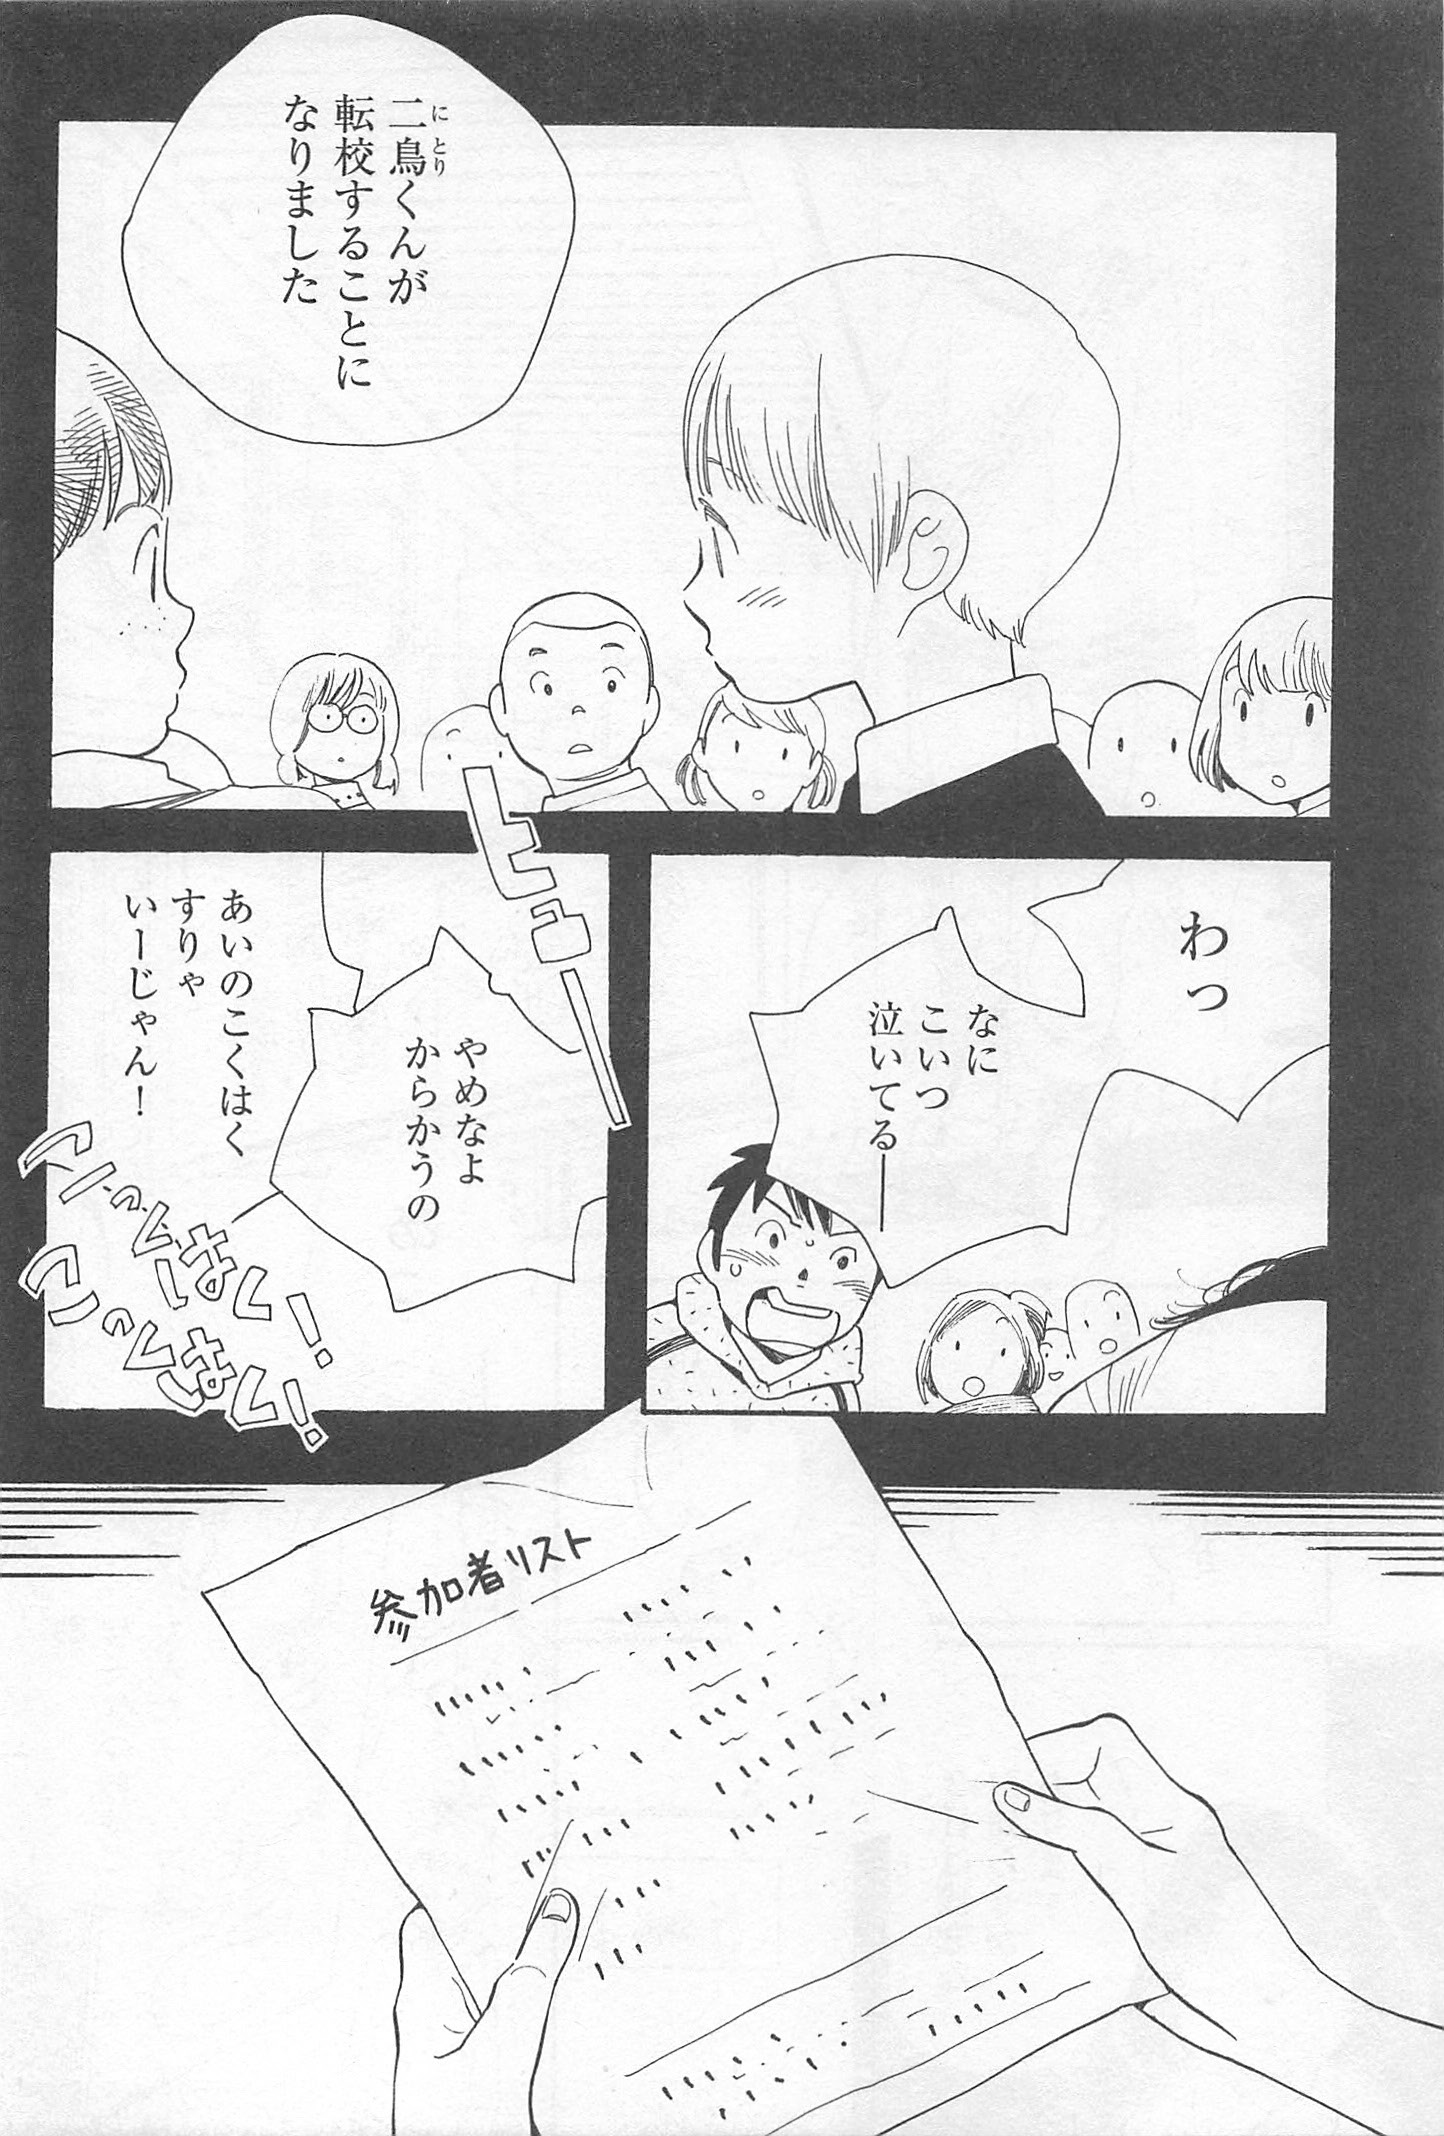 二鳥くんが
にとり
転校することに
なりました
わっ
なに
こいつ
泣いてる―
ヒュー
やめなよ
からかうの
あいのこくはく
すりゃ
いーじゃん!
こーくはく!
こっくはく!
参加者リスト